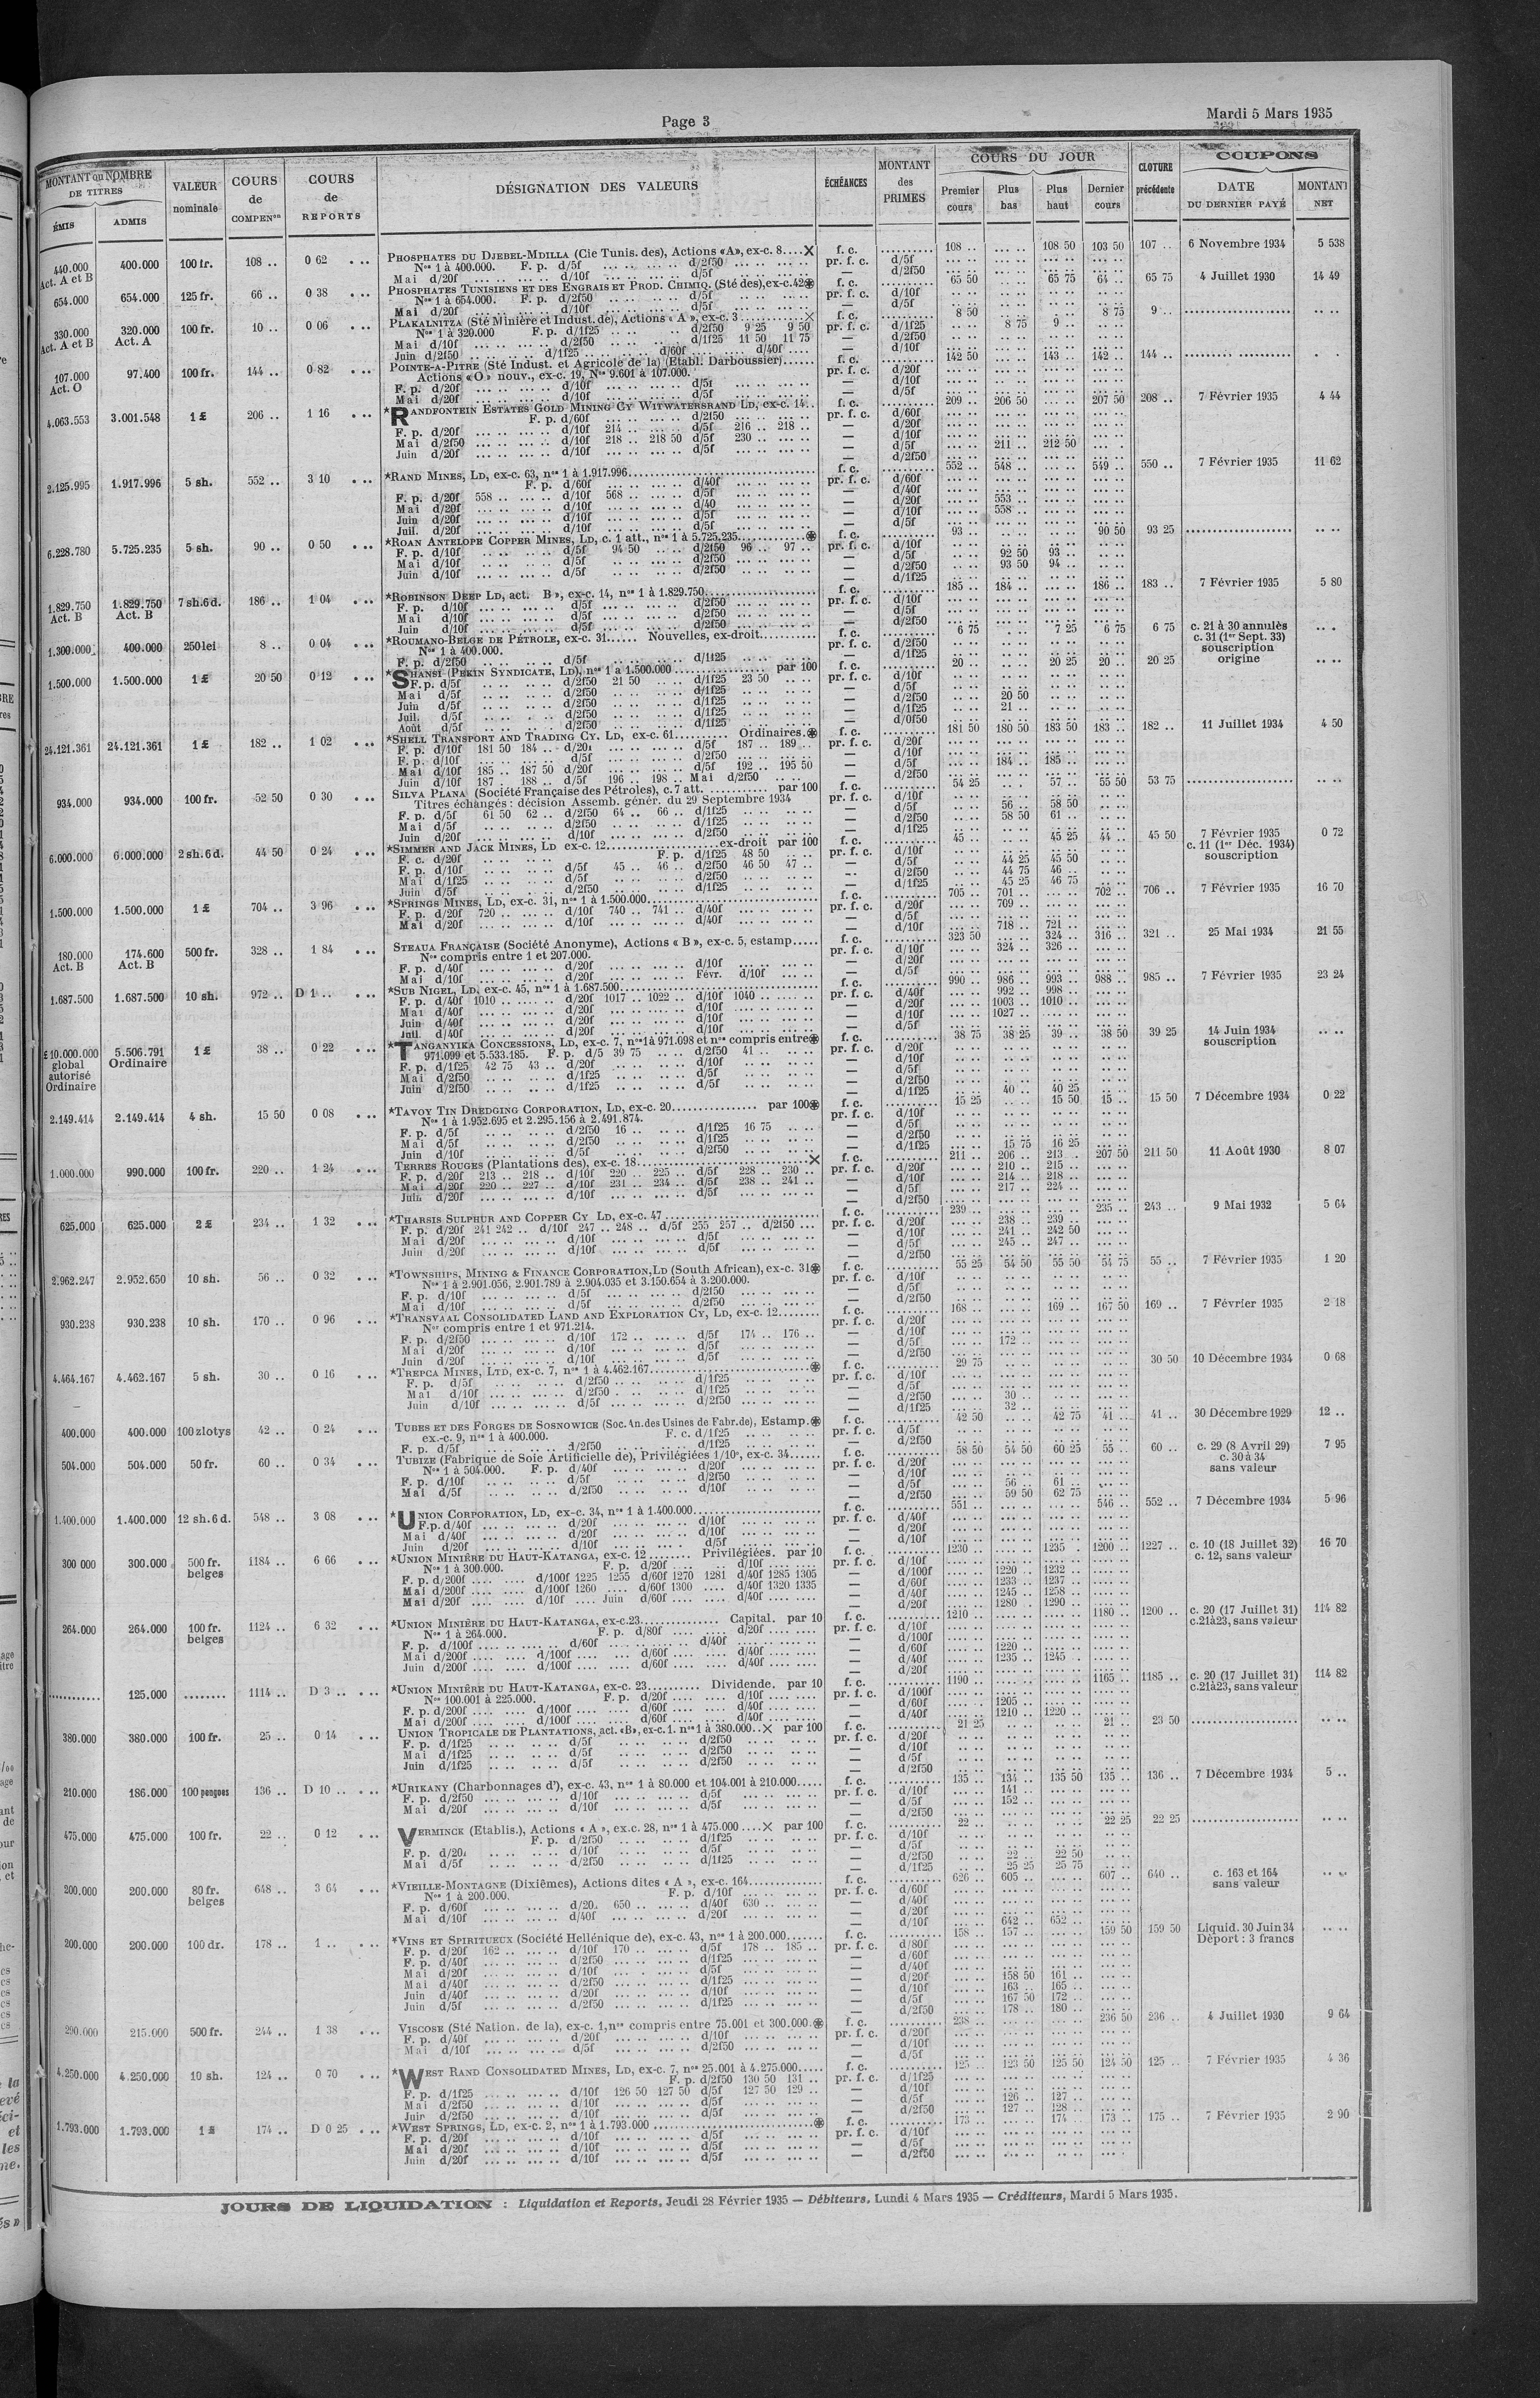 Page 3
Mardi 5 Mars 1935
MONTANT ou NOMBRE DE TITRES
ÉMIS
ADMIS
VALEUR nominale
COURS de COMPENon
COURS de REPORTS
DÉSIGNATION DES VALEURS
ÉCHÉANCES
MONTANT des PRIMES
COURS DU JOUR
Premier cours
Plus bas
Plus haut
Dernier cours
CLOTURE précédente
COUPONS
DATE DU DERNIER PAYÉ
MONTANT NET
440.000 Act. A et B 400.000 100 fr. 108 .. 0 62 PHOSPHATES DU DJEBEL-MDILLA (Cie Tunis. des), Actions «A», ex-c. 8....X f. c. 108 .. 108 50 103 50 107 .. 6 Novembre 1934 5 538
Nos 1 à 400.000. F. p. d/5f d/2f50 pr. f. c. d/5f
Mai d/20f d/10f d/5f — d/2f50
654.000 654.000 125 fr. 66 .. 0 38 PHOSPHATES TUNISIENS ET DES ENGRAIS ET PROD. CHIMIQ. (Sté des), ex-c. 42 f. c. 65 50 65 75 64 .. 65 75 4 Juillet 1930 14 49
Nos 1 à 654.000. F. p. d/2f50 d/5f pr. f. c. d/10f
Mai d/20f d/10f d/5f — d/5f
330.000 Act. A et B 320.000 Act. A 100 fr. 10 .. 0 06 PLAKALNITZA (Sté Minière et Indust. de), Actions « A », ex-c. 3 X f. c. 8 50 8 75 9 ..
Nos 1 à 320.000. F. p. d/1f25 d/2f50 9 25 9 50 pr. f. c. d/1f25 8 75 9 ..
Mai d/10f d/2f50 d/1f25 11 50 11 75 — d/2f50
Juin d/2f50 d/1f25 d/60f d/40f — d/10f
107.000 Act. O 97.400 100 fr. 144 .. 0 82 POINTE-A-PITRE (Sté Indust. et Agricole de la) (Etabl. Darboussier) f. c. 142 50 143 .. 142 .. 144 ..
Actions «O» nouv., ex-c. 19, Nos 9.601 à 107.000. pr. f. c. d/20f
F. p. d/20f d/10f d/5f — d/10f
Mai d/20f d/10f d/5f — d/5f
4.063.553 3.001.548 1 £ 206 .. 1 16 *RANDFONTEIN ESTATES GOLD MINING CY WITWATERSRAND LD, ex-c. 14 f. c. 209 .. 206 50 207 50 208 .. 7 Février 1935 4 44
F. p. d/60f d/2f50 pr. f. c. d/60f
F. p. d/20f d/10f 214 .. d/5f 216 .. 218 .. — d/20f
Mai d/2f50 d/10f 218 .. 218 50 d/5f 230 .. — d/10f
Juin d/20f d/10f d/5f — d/5f 211 .. 212 50
— d/2f50
2.125.995 1.917.996 5 sh. 552 .. 3 10 *RAND MINES, LD, ex-c. 63, nos 1 à 1.917.996 f. c. 552 .. 548 .. 549 .. 550 .. 7 Février 1935 11 62
F. p. d/60f d/40f pr. f. c. d/60f
F. p. d/20f 558 .. d/10f 568 .. d/5f — d/40f
Mai d/20f d/10f d/40 — d/20f 553 ..
Juin d/20f d/10f d/5f — d/10f 558 ..
Juil. d/20f d/10f d/5f — d/5f
6.228.780 5.725.235 5 sh. 90 .. 0 50 *ROAN ANTELOPE COPPER MINES, LD, c. 1 att., nos 1 à 5.725.235 f. c. 93 .. 90 50 93 25
F. p. d/10f d/5f 94 50 d/2f50 96 .. 97 .. pr. f. c. d/10f
Mai d/10f d/5f d/2f50 — d/5f 92 50 93 ..
Juin d/10f d/5f d/2f50 — d/2f50 93 50 94 ..
— d/1f25
1.829.750 Act. B 1.829.750 Act. B 7 sh. 6 d. 186 .. 1 04 *ROBINSON DEEP LD, act. B », ex-c. 14, nos 1 à 1.829.750 f. c. 185 .. 184 .. 186 .. 183 .. 7 Février 1935 5 80
F. p. d/10f d/5f d/2f50 pr. f. c. d/10f
Mai d/10f d/5f d/2f50 — d/5f
Juin d/10f d/5f d/2f50 — d/2f50
1.300.000 400.000 250 lei 8 .. 0 04 *ROUMANO-BELGE DE PÉTROLE, ex-c. 31 Nouvelles, ex-droit f. c. 6 75 7 25 6 75 6 75 c. 21 à 30 annulés c. 31 (1er Sept. 33) souscription
Nos 1 à 400.000. pr. f. c. d/2f50
F. p. d/2f50 d/5f d/1f25 — d/1f25
1.500.000 1.500.000 1 £ 20 50 0 12 *SHANSI (PEKIN SYNDICATE, LD), nos 1 à 1.500.000 par 100 f. c. 20 .. 20 25 20 .. 20 25 origine
F. p. d/5f d/2f50 21 50 d/1f25 23 50 pr. f. c. d/10f
Mai d/5f d/2f50 d/1f25 — d/5f
Juin d/5f d/2f50 d/1f25 — d/2f50 20 50
Juil. d/5f d/2f50 d/1f25 — d/1f25 21 ..
Août d/5f d/2f50 d/1f25 — d/0f50
24.121.361 24.121.361 1 £ 182 .. 1 02 *SHELL TRANSPORT AND TRADING CY. LD, ex-c. 61 Ordinaires. f. c. 181 50 180 50 183 50 183 .. 182 .. 11 Juillet 1934 4 50
F. p. d/10f 181 50 184 .. d/20f d/5f 187 .. 189 .. pr. f. c. d/20f
F. p. d/10f d/5f d/2f50 — d/10f
Mai d/10f 185 .. 187 50 d/20f d/5f 192 .. 195 50 — d/5f 184 .. 185 ..
Juin d/10f 187 .. 188 .. d/5f 196 .. 198 .. Mai d/2f50 — d/2f50
934.000 934.000 100 fr. 52 50 0 30 SILVA PLANA (Société Française des Pétroles), c. 7 att. par 100 f. c. 54 25 57 .. 55 50 53 75
Titres échangés : décision Assemb. génér. du 29 Septembre 1934 pr. f. c. d/10f
F. p. d/5f 61 50 62 .. d/2f50 64 .. 66 .. d/1f25 — d/5f 56 .. 58 50
Mai d/5f d/2f50 d/1f25 — d/2f50 58 50 61 ..
Juin d/20f d/10f d/2f50 — d/1f25
6.000.000 6.000.000 2 sh. 6 d. 44 50 0 24 *SIMMER AND JACK MINES, LD ex-c. 12 ex-droit par 100 f. c. 45 .. 45 25 44 .. 45 50 7 Février 1935 c. 11 (1er Déc. 1934) souscription 0 72
F. c. d/20f F. p. d/1f25 48 50 pr. f. c. d/10f
F. p. d/10f d/5f 45 .. 46 .. d/2f50 46 50 47 .. — d/5f 44 25 45 50
Mai d/1f25 d/5f d/2f50 d/2f50 44 75 46 ..
Juin d/5f d/2f50 d/1f25 — d/1f25 45 25 46 75
1.500.000 1.500.000 1 £ 704 .. 3 96 *SPRINGS MINES, LD, ex-c. 31, nos 1 à 1.500.000 f. c. 705 .. 701 .. 702 .. 706 .. 7 Février 1935 16 70
F. p. d/20f 720 .. d/10f 740 .. 741 .. d/40f pr. f. c. d/20f 709 ..
Mai d/20f d/10f d/40f — d/5f
— d/10f 718 .. 721 ..
180.000 Act. B 174.600 Act. B 500 fr. 328 .. 1 84 STEAUA FRANÇAISE (Société Anonyme), Actions « B », ex-c. 5, estamp. f. c. 323 50 324 .. 316 .. 321 .. 25 Mai 1934 21 55
Nos compris entre 1 et 207.000. pr. f. c. d/10f 324 .. 326 ..
F. p. d/40f d/20f d/10f — d/20f
Mai d/10f d/20f Févr. d/10f — d/5f
1.687.500 1.687.500 10 sh. 972 .. D 1 .. *SUB NIGEL, LD, ex-c. 45, nos 1 à 1.687.500 f. c. 990 .. 986 .. 993 .. 988 .. 985 .. 7 Février 1935 23 24
F. p. d/40f 1010 .. d/20f 1017 .. 1022 .. d/10f 1040 .. pr. f. c. d/40f 992 .. 998 ..
Mai d/40f d/20f d/10f — d/20f 1003 .. 1010 ..
Juin d/40f d/20f d/10f — d/10f 1027 ..
Juil. d/40f d/20f d/10f — d/5f
£ 10.000.000 global autorisé Ordinaire 5.506.791 Ordinaire 1 £ 38 .. 0 22 *TANGANYIKA CONCESSIONS, LD, ex-c. 7, nos 1 à 971.098 et nos compris entre f. c. 38 75 38 25 39 .. 38 50 39 25 14 Juin 1934 souscription
971.099 et 5.533.185. F. p. d/5 39 75 d/2f50 41 .. pr. f. c. d/20f
F. p. d/1f25 42 75 43 .. d/20f d/10f — d/10f
Mai d/2f50 d/1f25 d/5f — d/5f
Juin d/2f50 d/1f25 d/5f — d/2f50
— d/1f25 40 .. 40 25
2.149.414 2.149.414 4 sh. 15 50 0 08 *TAVOY TIN DREDGING CORPORATION, LD, ex-c. 20 par 100 f. c. 15 25 15 50 15 .. 15 50 7 Décembre 1934 0 22
Nos 1 à 1.952.695 et 2.295.156 à 2.491.874. pr. f. c. d/10f
F. p. d/5f d/2f50 16 .. d/1f25 16 75 — d/5f
Mai d/5f d/2f50 d/1f25 — d/2f50
Juin d/10f d/5f d/2f50 — d/1f25 15 75 16 25
1.000.000 990.000 100 fr. 220 .. 1 24 TERRES ROUGES (Plantations des), ex-c. 18 X f. c. 211 .. 206 .. 213 .. 207 50 211 50 11 Août 1930 8 07
F. p. d/20f 213 .. 218 .. d/10f 220 .. 225 .. d/5f 228 .. 230 .. pr. f. c. d/20f 210 .. 215 ..
Mai d/20f 220 .. 227 .. d/10f 231 .. 234 .. d/5f 238 .. 241 .. — d/10f 214 .. 218 ..
Juin d/20f d/10f d/5f — d/5f 217 .. 224 ..
— d/2f50
625.000 625.000 2 £ 234 .. 1 32 *THARSIS SULPHUR AND COPPER CY LD, ex-c. 47 f. c. 239 .. 235 .. 243 .. 9 Mai 1932 5 64
F. p. d/20f 241 242 .. d/10f 247 .. 248 .. d/5f 255 257 .. d/2f50 pr. f. c. d/20f 238 .. 239 ..
Mai d/20f d/10f d/5f — d/10f 241 .. 242 50
Juin d/20f d/10f d/5f — d/5f 245 .. 247 ..
— d/2f50
2.962.247 2.952.650 10 sh. 56 .. 0 32 *TOWNSHIPS, MINING & FINANCE CORPORATION, LD (South African), ex-c. 31 f. c. 55 25 54 50 55 50 54 75 55 .. 7 Février 1935 1 20
Nos 1 à 2.901.056, 2.901.789 à 2.904.035 et 3.150.654 à 3.200.000. pr. f. c. d/10f
F. p. d/10f d/5f d/2f50 — d/5f
Mai d/10f d/5f d/2f50 — d/2f50
930.238 930.238 10 sh. 170 .. 0 96 *TRANSVAAL CONSOLIDATED LAND AND EXPLORATION CY, LD, ex-c. 12 f. c. 168 .. 169 .. 167 50 169 .. 7 Février 1935 2 18
Nos compris entre 1 et 971.214. pr. f. c. d/20f
F. p. d/2f50 d/10f 172 .. d/5f 174 .. 176 .. — d/10f
Mai d/20f d/10f d/5f — d/5f 172 ..
Juin d/20f d/10f d/5f — d/2f50
4.464.167 4.462.167 5 sh. 30 .. 0 16 *TREPCA MINES, LTD, ex-c. 7, nos 1 à 4.462.167 f. c. 29 75 30 50 10 Décembre 1934 0 68
F. p. d/5f d/2f50 d/1f25 pr. f. c. d/10f
Mai d/10f d/2f50 d/1f25 — d/5f
Juin d/10f d/5f d/2f50 — d/2f50 30 ..
— d/1f25 32 ..
400.000 400.000 100 zlotys 42 .. 0 24 TUBES ET DES FORGES DE SOSNOWICE (Soc. An. des Usines de Fabr. de), Estamp. f. c. 42 50 42 75 41 .. 41 .. 30 Décembre 1929 12 ..
ex.-c. 9, nos 1 à 400.000. F. c. d/1f25 pr. f. c. d/5f
F. p. d/5f d/2f50 d/1f25 — d/2f50
504.000 504.000 50 fr. 60 .. 0 34 TUBIZE (Fabrique de Soie Artificielle de), Privilégiées 1/10e, ex-c. 34 f. c. 58 50 54 50 60 25 55 .. 60 .. c. 29 (8 Avril 29) c. 30 à 34 sans valeur 7 95
Nos 1 à 504.000. F. p. d/40f d/20f pr. f. c. d/20f
F. p. d/10f d/5f d/2f50 — d/10f
Mai d/5f d/2f50 d/10f — d/5f 56 .. 61 ..
— d/2f50 59 50 62 75
1.400.000 1.400.000 12 sh. 6 d. 548 .. 3 08 *UNION CORPORATION, LD, ex-c. 34, nos 1 à 1.400.000 f. c. 551 .. 546 .. 552 .. 7 Décembre 1934 5 96
F. p. d/40f d/20f d/10f pr. f. c. d/40f
Mai d/40f d/20f d/10f — d/20f
Juin d/20f d/10f d/5f — d/10f
300 000 300.000 500 fr. belges 1184 .. 6 66 *UNION MINIÈRE DU HAUT-KATANGA, ex-c. 12 Privilégiées. par 10 f. c. 1230 .. 1235 . 1200 .. 1227 .. c. 10 (18 Juillet 32) c. 12, sans valeur 16 70
Nos 1 à 300.000. F. p. d/20f d/10f pr. f. c. d/10f
F. p. d/200f d/100f 1225 1255 d/60f 1270 1281 d/40f 1285 1305 — d/100f 1220 .. 1232 ..
Mai d/200f d/100f 1260 d/60f 1300 d/40f 1320 1335 — d/60f 1233 .. 1237 ..
Mai d/20f d/10f Juin d/60f d/40f — d/40f 1245 .. 1258 ..
— d/20f 1280 .. 1290 ..
264.000 264.000 100 fr. belges 1124 .. 6 32 *UNION MINIÈRE DU HAUT-KATANGA, ex-c. 23 Capital. par 10 f. c. 1210 .. 1180 .. 1200 .. c. 20 (17 Juillet 31) c. 21 à 23, sans valeur 114 82
Nos 1 à 264.000. F. p. d/80f d/20f pr. f. c. d/10f
F. p. d/100f d/60f d/40f — d/100f
Mai d/200f d/100f d/60f d/40f — d/60f 1220 ..
Juin d/200f d/100f d/60f d/40f — d/40f 1235 .. 1245 ..
— d/20f
125.000 1114 .. D 3 .. *UNION MINIÈRE DU HAUT-KATANGA, ex-c. 23 Dividende. par 10 f. c. 1190 .. 1165 .. 1185 .. c. 20 (17 Juillet 31) c. 21 à 23, sans valeur 114 82
Nos 100.001 à 225.000. F. p. d/20f d/10f pr. f. c. d/100f
F. p. d/200f d/100f d/60f d/40f — d/60f 1205 ..
Mai d/200f d/100f d/60f d/40f — d/40f 1210 .. 1220 ..
380.000 380.000 100 fr. 25 .. 0 14 UNION TROPICALE DE PLANTATIONS, act. «B», ex-c. 1. nos 1 à 380.000..X par 100 f. c. 21 25 21 .. 23 50
F. p. d/1f25 d/5f d/2f50 pr. f. c. d/20f
Mai d/1f25 d/5f d/2f50 — d/10f
Juin d/1f25 d/5f d/2f50 — d/5f
— d/2f50
210.000 186.000 100 pengoes 136 .. D 10 .. *URIKANY (Charbonnages d'), ex-c. 43, nos 1 à 80.000 et 104.001 à 210.000 f. c. 135 .. 134 .. 135 50 135 .. 136 .. 7 Décembre 1934 5 ..
F. p. d/2f50 d/10f d/5f pr. f. c. d/10f 141 ..
Mai d/20f d/10f d/5f — d/5f 152 ..
— d/2f50
475.000 475.000 100 fr. 22 .. 0 12 VERMINCK (Etablis.), Actions « A », ex-c. 28, nos 1 à 475.000....X par 100 f. c. 22 .. 22 25 22 25
F. p. d/2f50 d/1f25 pr. f. c. d/10f
F. p. d/20f d/10f d/5f — d/5f
Mai d/5f d/2f50 d/1f25 — d/2f50 22 .. 22 50
— d/1f25 25 25 25 75
200.000 200.000 80 fr. belges 648 .. 3 64 *VIEILLE-MONTAGNE (Dixièmes), Actions dites « A », ex-c. 164 f. c. 626 .. 605 .. 607 .. 640 .. c. 163 et 164 sans valeur
Nos 1 à 200.000. F. p. d/10f pr. f. c. d/60f
F. p. d/60f d/20f 650 .. d/40f 630 .. — d/40f
Mai d/10f d/40f d/20f — d/20f
— d/10f 642 .. 652 ..
200.000 200.000 100 dr. 178 .. 1 .. *VINS ET SPIRITUEUX (Société Hellénique de), ex-c. 43, nos 1 à 200.000 f. c. 158 .. 157 .. 159 50 159 50 Liquid. 30 Juin 34 Déport : 3 francs
F. p. d/20f 162 .. d/10f 170 .. d/5f 178 .. 185 .. pr. f. c. d/80f
F. p. d/40f d/2f50 d/1f25 — d/60f
Mai d/20f d/10f d/5f — d/40f
Mai d/40f d/2f50 d/1f25 — d/20f 158 50 161 ..
Juin d/40f d/20f d/10f — d/10f 163 .. 165 ..
Juin d/5f d/2f50 d/1f25 — d/5f 167 50 172 ..
— d/2f50 178 .. 180 ..
290.000 215.000 500 fr. 244 .. 1 38 VISCOSE (Sté Nation. de la), ex-c. 1, nos compris entre 75.001 et 300.000. f. c. 238 .. 236 50 236 .. 4 Juillet 1930 9 64
F. p. d/40f d/20f d/10f pr. f. c. d/20f
Mai d/10f d/5f d/2f50 — d/10f
— d/5f
4.250.000 4.250.000 10 sh. 124 .. 0 70 *WEST RAND CONSOLIDATED MINES, LD, ex-c. 7, nos 25.001 à 4.275.000 f. c. 125 .. 123 50 125 50 124 50 125 .. 7 Février 1935 4 36
F. p. d/2f50 130 50 131 .. pr. f. c. d/1f25
F. p. d/1f25 d/10f 126 50 127 50 d/5f 127 50 129 .. — d/10f
Mai d/2f50 d/10f d/5f — d/5f 126 .. 127 ..
Juin d/2f50 d/10f d/5f — d/2f50 127 .. 128 ..
1.793.000 1.793.000 1 £ 174 .. D 0 25 *WEST SPRINGS, LD, ex-c. 2, nos 1 à 1.793.000 f. c. 173 .. 174 .. 173 .. 175 .. 7 Février 1935 2 90
F. p. d/20f d/10f d/5f pr. f. c. d/10f
Mai d/20f d/10f d/5f — d/5f
Juin d/20f d/10f d/5f — d/2f50
JOURS DE LIQUIDATION : Liquidation et Reports, Jeudi 28 Février 1935 — Débiteurs, Lundi 4 Mars 1935 — Créditeurs, Mardi 5 Mars 1935.